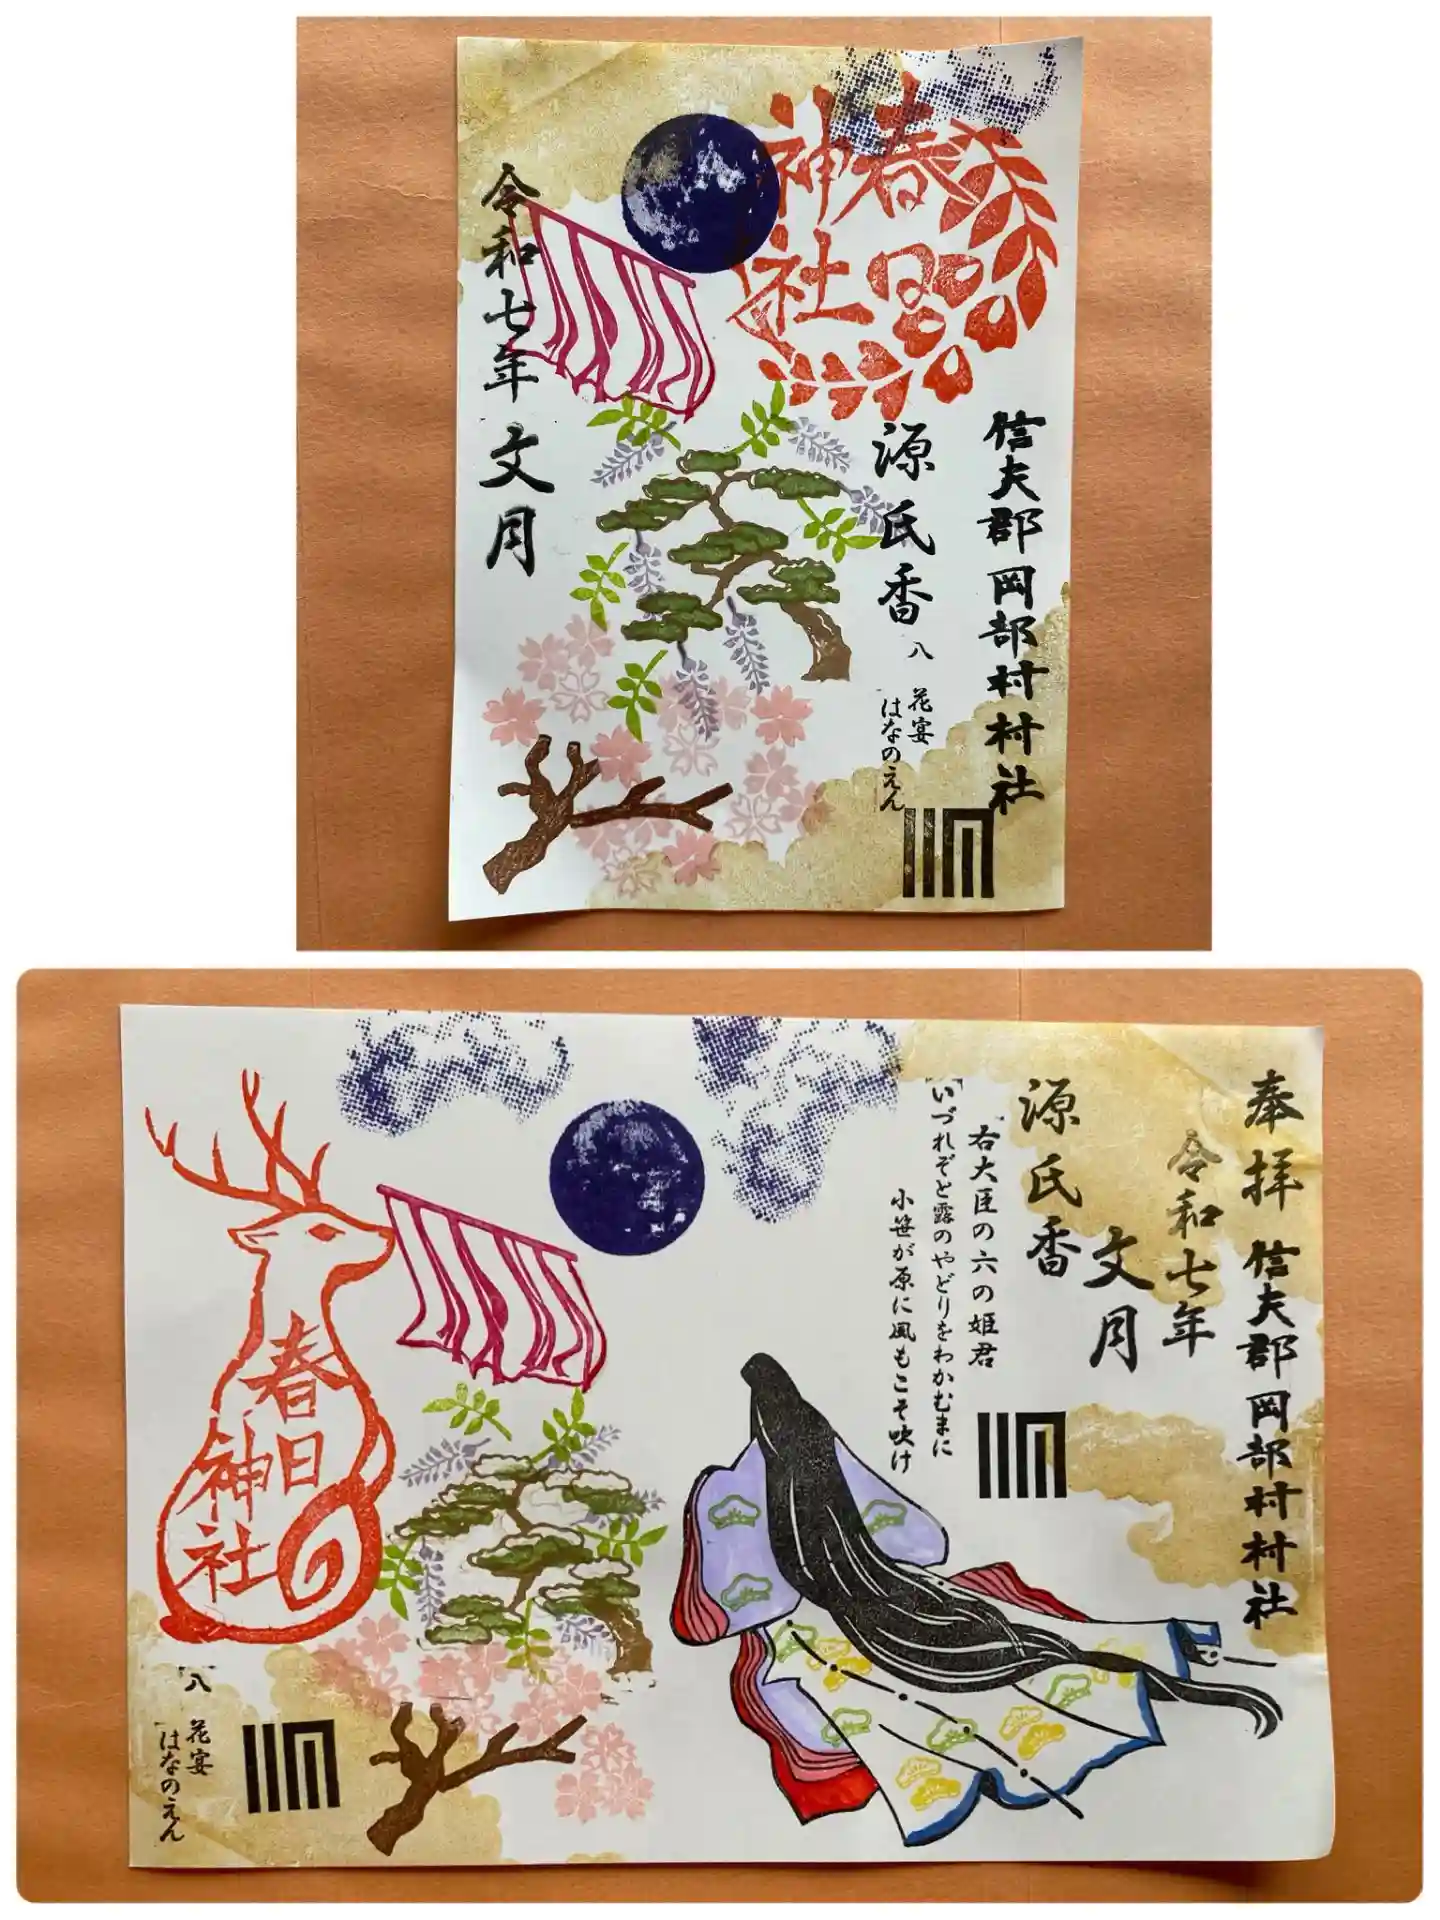 春日
神社
信夫郡岡部村村社
源氏香
八
花宴
はなのえん
令和七年
文月
奉拝
信夫郡岡部村村社
令和七年
文月
源氏香
右大臣の六の姫君
いづれぞと露のやどりをわかむまに
小笹が原に風もこそ吹け
春日
神社
八
花宴
はなのえん